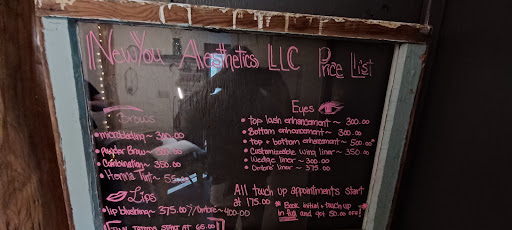 NewYou Aesthetics LLC Price List
Brows
• microblading ~ 300.00
• powder Brow ~ 300.00
• Combination ~ 350.00
• Henna Tint ~
Lips
• lip blushing ~ 375.00 // ombre ~ 400.00
START AT 65.00
Eyes
• top lash enhancement ~ 300.00
• Bottom enhancement ~ 300.00
• top + bottom enhancement ~ 500.00
• Customizable wing liner ~ 350.00
• Wedge liner ~ 300.00
• Ombre' liner ~ 375.00
All touch up appointments start
at 175.00 * Book initial + touch up
and get 50.00 OFF!